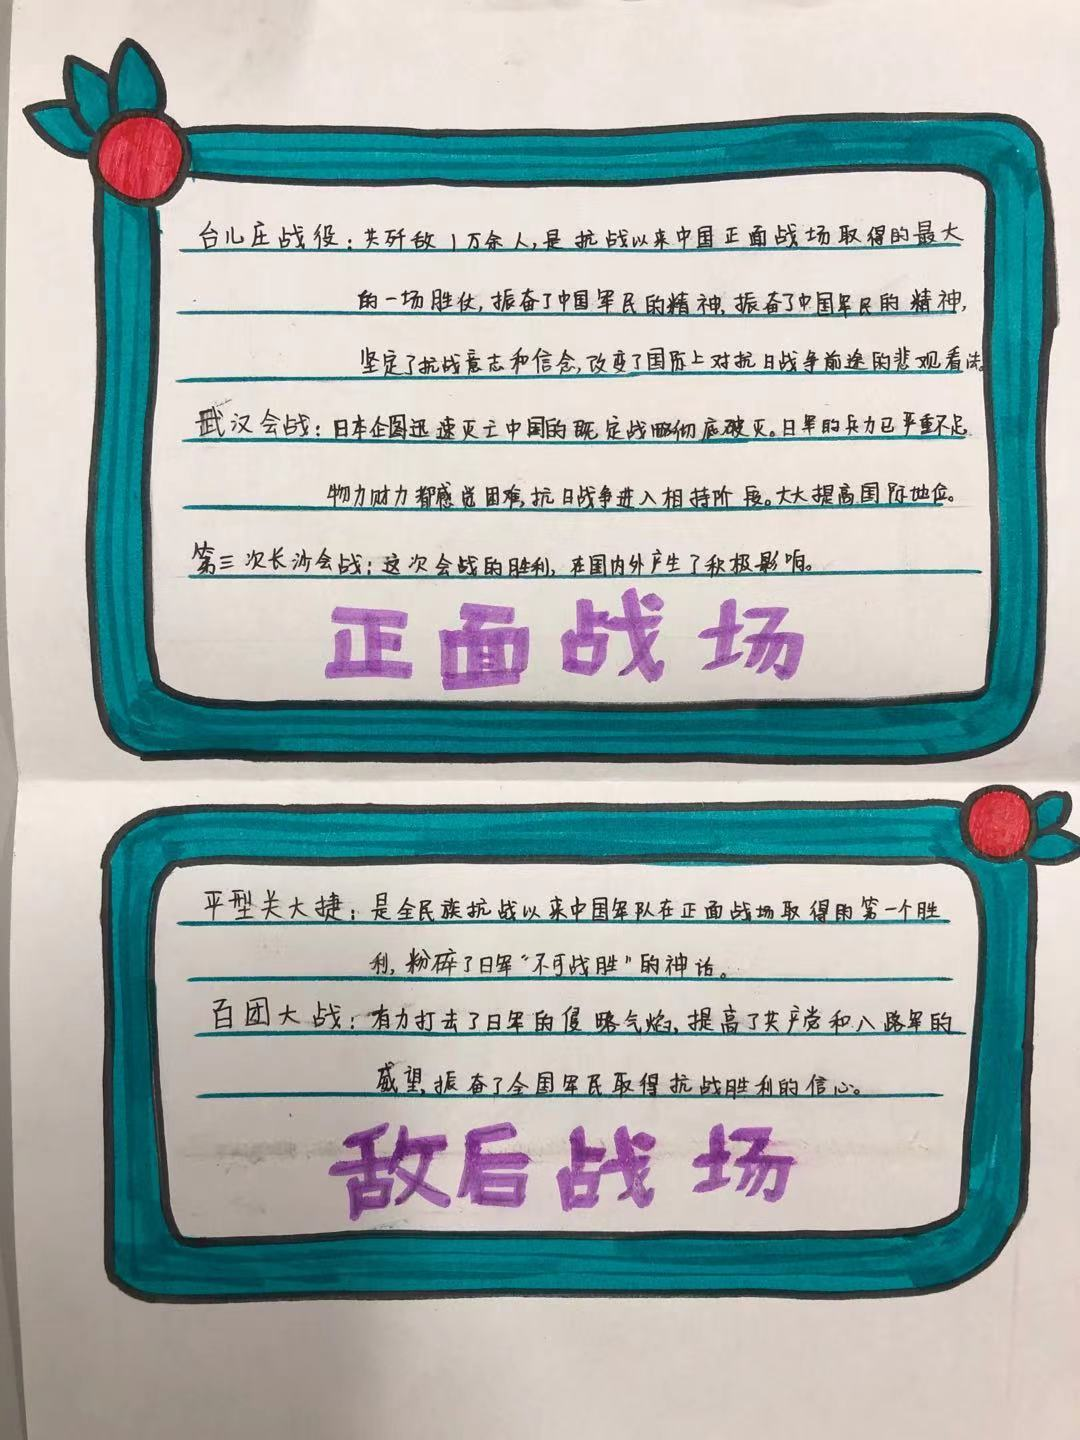 台儿庄战役：共歼敌1万余人，是抗战以来中国正面战场取得的最大
的一场胜仗，振奋了中国军民的精神，振奋了中国军民的精神，
坚定了抗战意志和信念，改变了国际上对抗日战争前途的悲观看法。
武汉会战：日本企图迅速灭亡中国的既定战略彻底破灭。日军的兵力已严重不足
物力财力都感觉困难，抗日战争进入相持阶段。大大提高国际地位。
第三次长沙会战：这次会战的胜利，在国内外产生了积极影响。
正面战场
平型关大捷：是全民族抗战以来中国军队在正面战场取得的第一个胜
利，粉碎了日军“不可战胜”的神话。
百团大战：有力打击了日军的侵略气焰，提高了共产党和八路军的
威望，振奋了全国军民取得抗战胜利的信心。
敌后战场